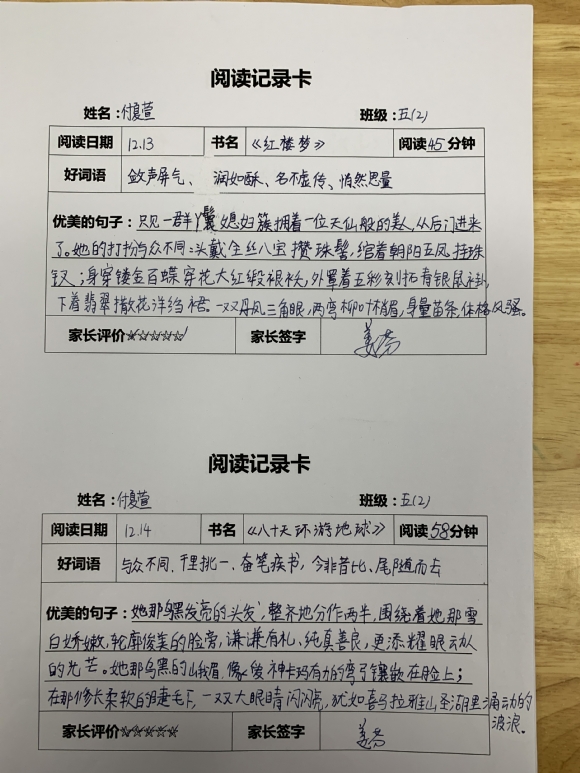 阅读记录卡
姓名：付夏萱 班级：五(2)
阅读日期 12.13 书名 《红楼梦》 阅读45分钟
好词语 敛声屏气、润如酥、名不虚传、悄然思量
优美的句子：只见一群丫鬟媳妇簇拥着一位天仙般的美人，从后门进来
了。她的打扮与众不同：头戴金丝八宝攒珠髻，绾着朝阳五凤挂珠
钗；身穿镂金百蝶穿花大红缎袄，外罩着五彩刻丝石青银鼠褂，
下着翡翠撒花洋绉裙。一双丹凤三角眼，两弯柳叶梢眉，身量苗条，体格风骚。
家长评价☆☆☆☆☆ 家长签字
阅读记录卡
姓名：付夏萱 班级：五(2)
阅读日期 12.14 书名 《八十天环游地球》 阅读58分钟
好词语 与众不同、千里挑一、奋笔疾书、今非昔比、尾随而去
优美的句子：她那乌黑发亮的头发，整齐地分作两半，围绕着她那雪
白娇嫩，轮廓俊美的脸旁，谦谦有礼、纯真善良，更添耀眼动人
的光芒。她那乌黑的峨眉，像爱神卡玛有力的弯弓镶嵌在脸上；
在那修长柔软的睫毛下，一双大眼睛闪闪亮，犹如喜马拉雅山圣湖里涌动的
波浪。
家长评价☆☆☆☆☆ 家长签字